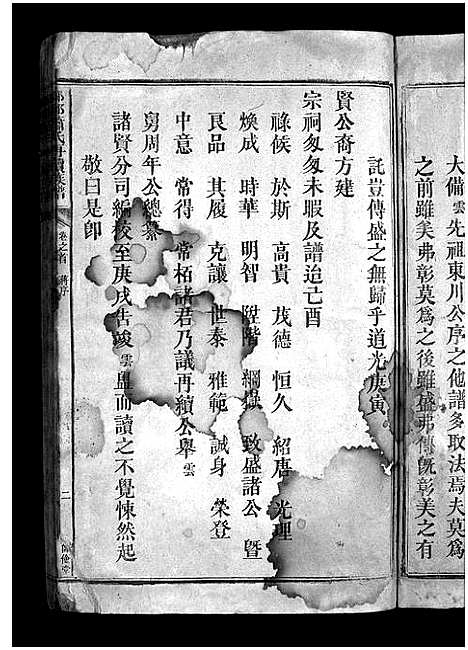 大備雲先祖東川公序之他譜多取法焉夫莫為
之前雖美弗彰莫為之後雖盛弗傳既彰美之有
託豈傳盛之無歸乎道光庚寅
賢公裔方建
宗祠匆匆未暇及譜迨亡酉
祿候 於斯 高貴 茂德 恒久 紹唐 光理
煥成 時華 明智 陞階 綱嶽 致盛諸公 暨
良品 其履 克讓 世泰 雅範 誠身 榮登
中意 常得 常栢諸君乃議再續公舉雲
舅周年公總纂
諸賢分司編校至庚戌告竣雲盥而讀之不覺悚然起
敬曰是卽
卷之首 蔣序
二